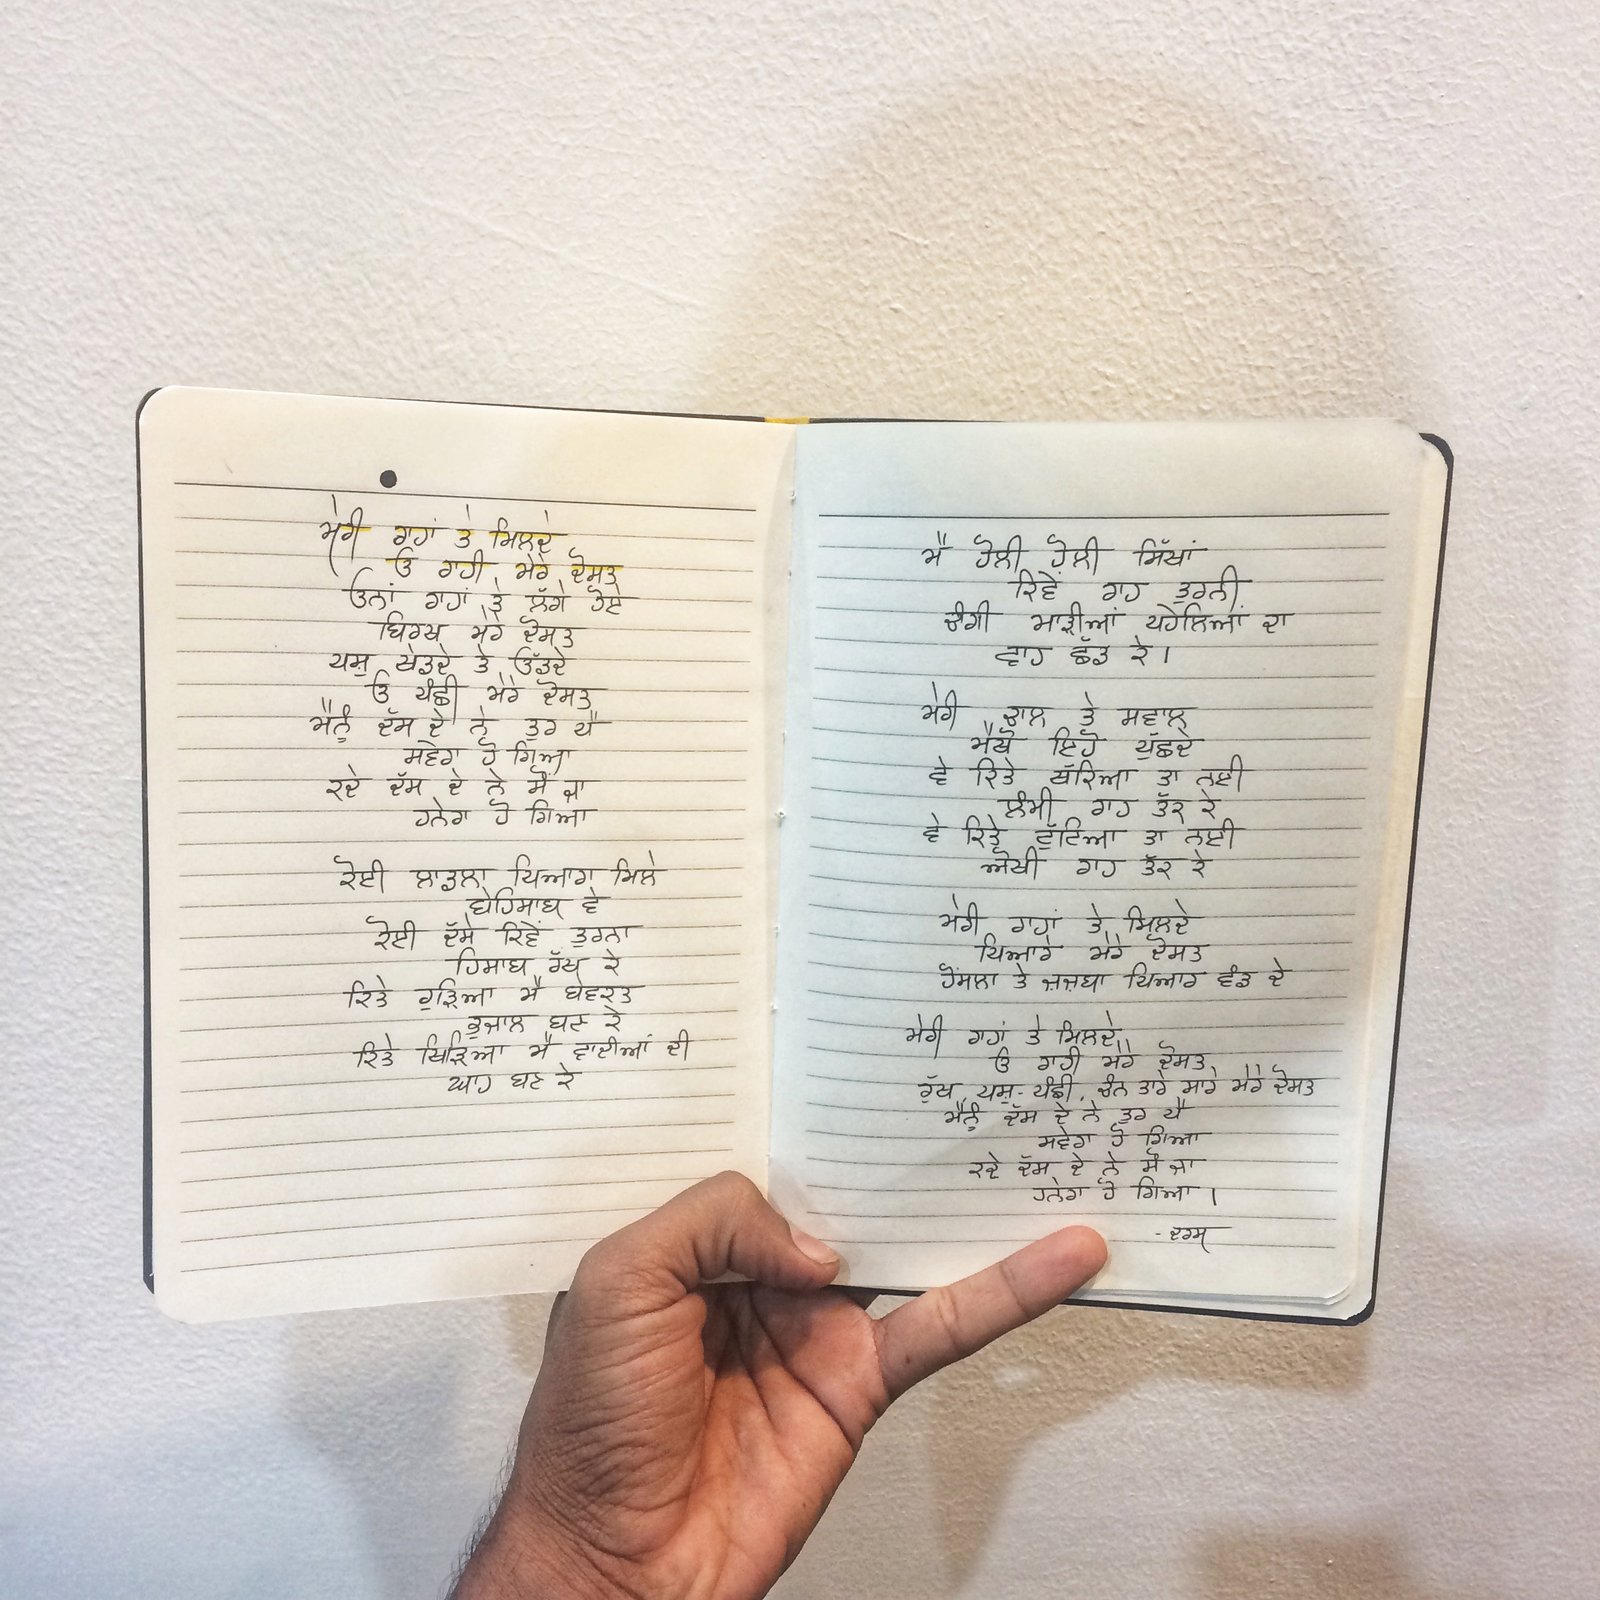 ਮੇਰੀ ਰਾਹਾਂ ਤੇ ਮਿਲਦੇ
ਓ ਰਾਹੀ ਮੇਰੇ ਦੋਸਤ
ਓਨਾਂ ਰਾਹਾਂ ਤੇ ਲੱਗੇ ਹੋਏ
ਬਿਰਖ ਮੇਰੇ ਦੋਸਤ
ਪਸ਼ੂ ਖੇਡਦੇ ਤੇ ਉੱਡਦੇ
ਓ ਪੰਛੀ ਮੇਰੇ ਦੋਸਤ
ਮੈਨੂੰ ਦੱਸ ਦੇ ਨੇ ਤੁਰ ਪੈ
ਸਵੇਰਾ ਹੋ ਗਿਆ
ਕਦੇ ਦੱਸ ਦੇ ਨੇ ਸੌਂ ਜਾ
ਹਨੇਰਾ ਹੋ ਗਿਆ
ਕੋਈ ਲਾਡਲਾ ਪਿਆਰਾ ਮਿਲੇ
ਬੇਹਿਸਾਬ ਵੇ
ਕੋਈ ਦੱਸੇ ਕਿਵੇਂ ਤੁਰਨਾ
ਹਿਸਾਬ ਰੱਖ ਕੇ
ਕਿਤੇ ਰੁੜਿਆ ਮੈ ਬੇਵਕਤ
ਭੁਜਾਲ ਬਣ ਕੇ
ਕਿਤੇ ਖਿੜਿਆ ਮੈ ਵਾਦੀਆਂ ਦੀ
ਘਾਹ ਬਣ ਕੇ
ਮੈ ਹੋਲੀ ਹੋਲੀ ਸਿੱਖਾਂ
ਕਿਵੇਂ ਰਾਹ ਤੁਰਨੀ
ਚੰਗੀ ਮਾੜੀਆਂ ਪਹੇਲਿਆਂ ਦਾ
ਵਾਹ ਛੱਡ ਕੇ।
ਮੇਰੀ ਚਾਲ ਤੇ ਸਵਾਲ
ਮੈਥੋ ਇਹੋ ਪੁੱਛਦੇ
ਵੇ ਕਿਤੇ ਥੱਕਿਆ ਤਾ ਨਈ
ਲੰਮੀ ਰਾਹ ਤੱਕ ਕੇ
ਵੇ ਕਿਤੇ ਟੁੱਟਿਆ ਤਾ ਨਈ
ਔਖੀ ਰਾਹ ਤੱਕ ਕੇ
ਮੇਰੀ ਰਾਹਾਂ ਤੇ ਮਿਲਦੇ
ਪਿਆਰੇ ਮੇਰੇ ਦੋਸਤ
ਹੌਂਸਲਾ ਤੇ ਜਜ਼ਬਾ ਪਿਆਰ ਵੰਡ ਦੇ
ਮੇਰੀ ਰਾਹਾਂ ਤੇ ਮਿਲਦੇ
ਓ ਰਾਹੀ ਮੇਰੇ ਦੋਸਤ
ਰੁੱਖ, ਪਸ਼ੂ-ਪੰਛੀ, ਚੰਨ ਤਾਰੇ ਸਾਰੇ ਮੇਰੇ ਦੋਸਤ
ਮੈਨੂੰ ਦੱਸ ਦੇ ਨੇ ਤੁਰ ਪੈ
ਸਵੇਰਾ ਹੋ ਗਿਆ
ਕਦੇ ਦੱਸ ਦੇ ਨੇ ਸੌਂ ਜਾ
ਹਨੇਰਾ ਹੋ ਗਿਆ।
-ਦਰਸ਼